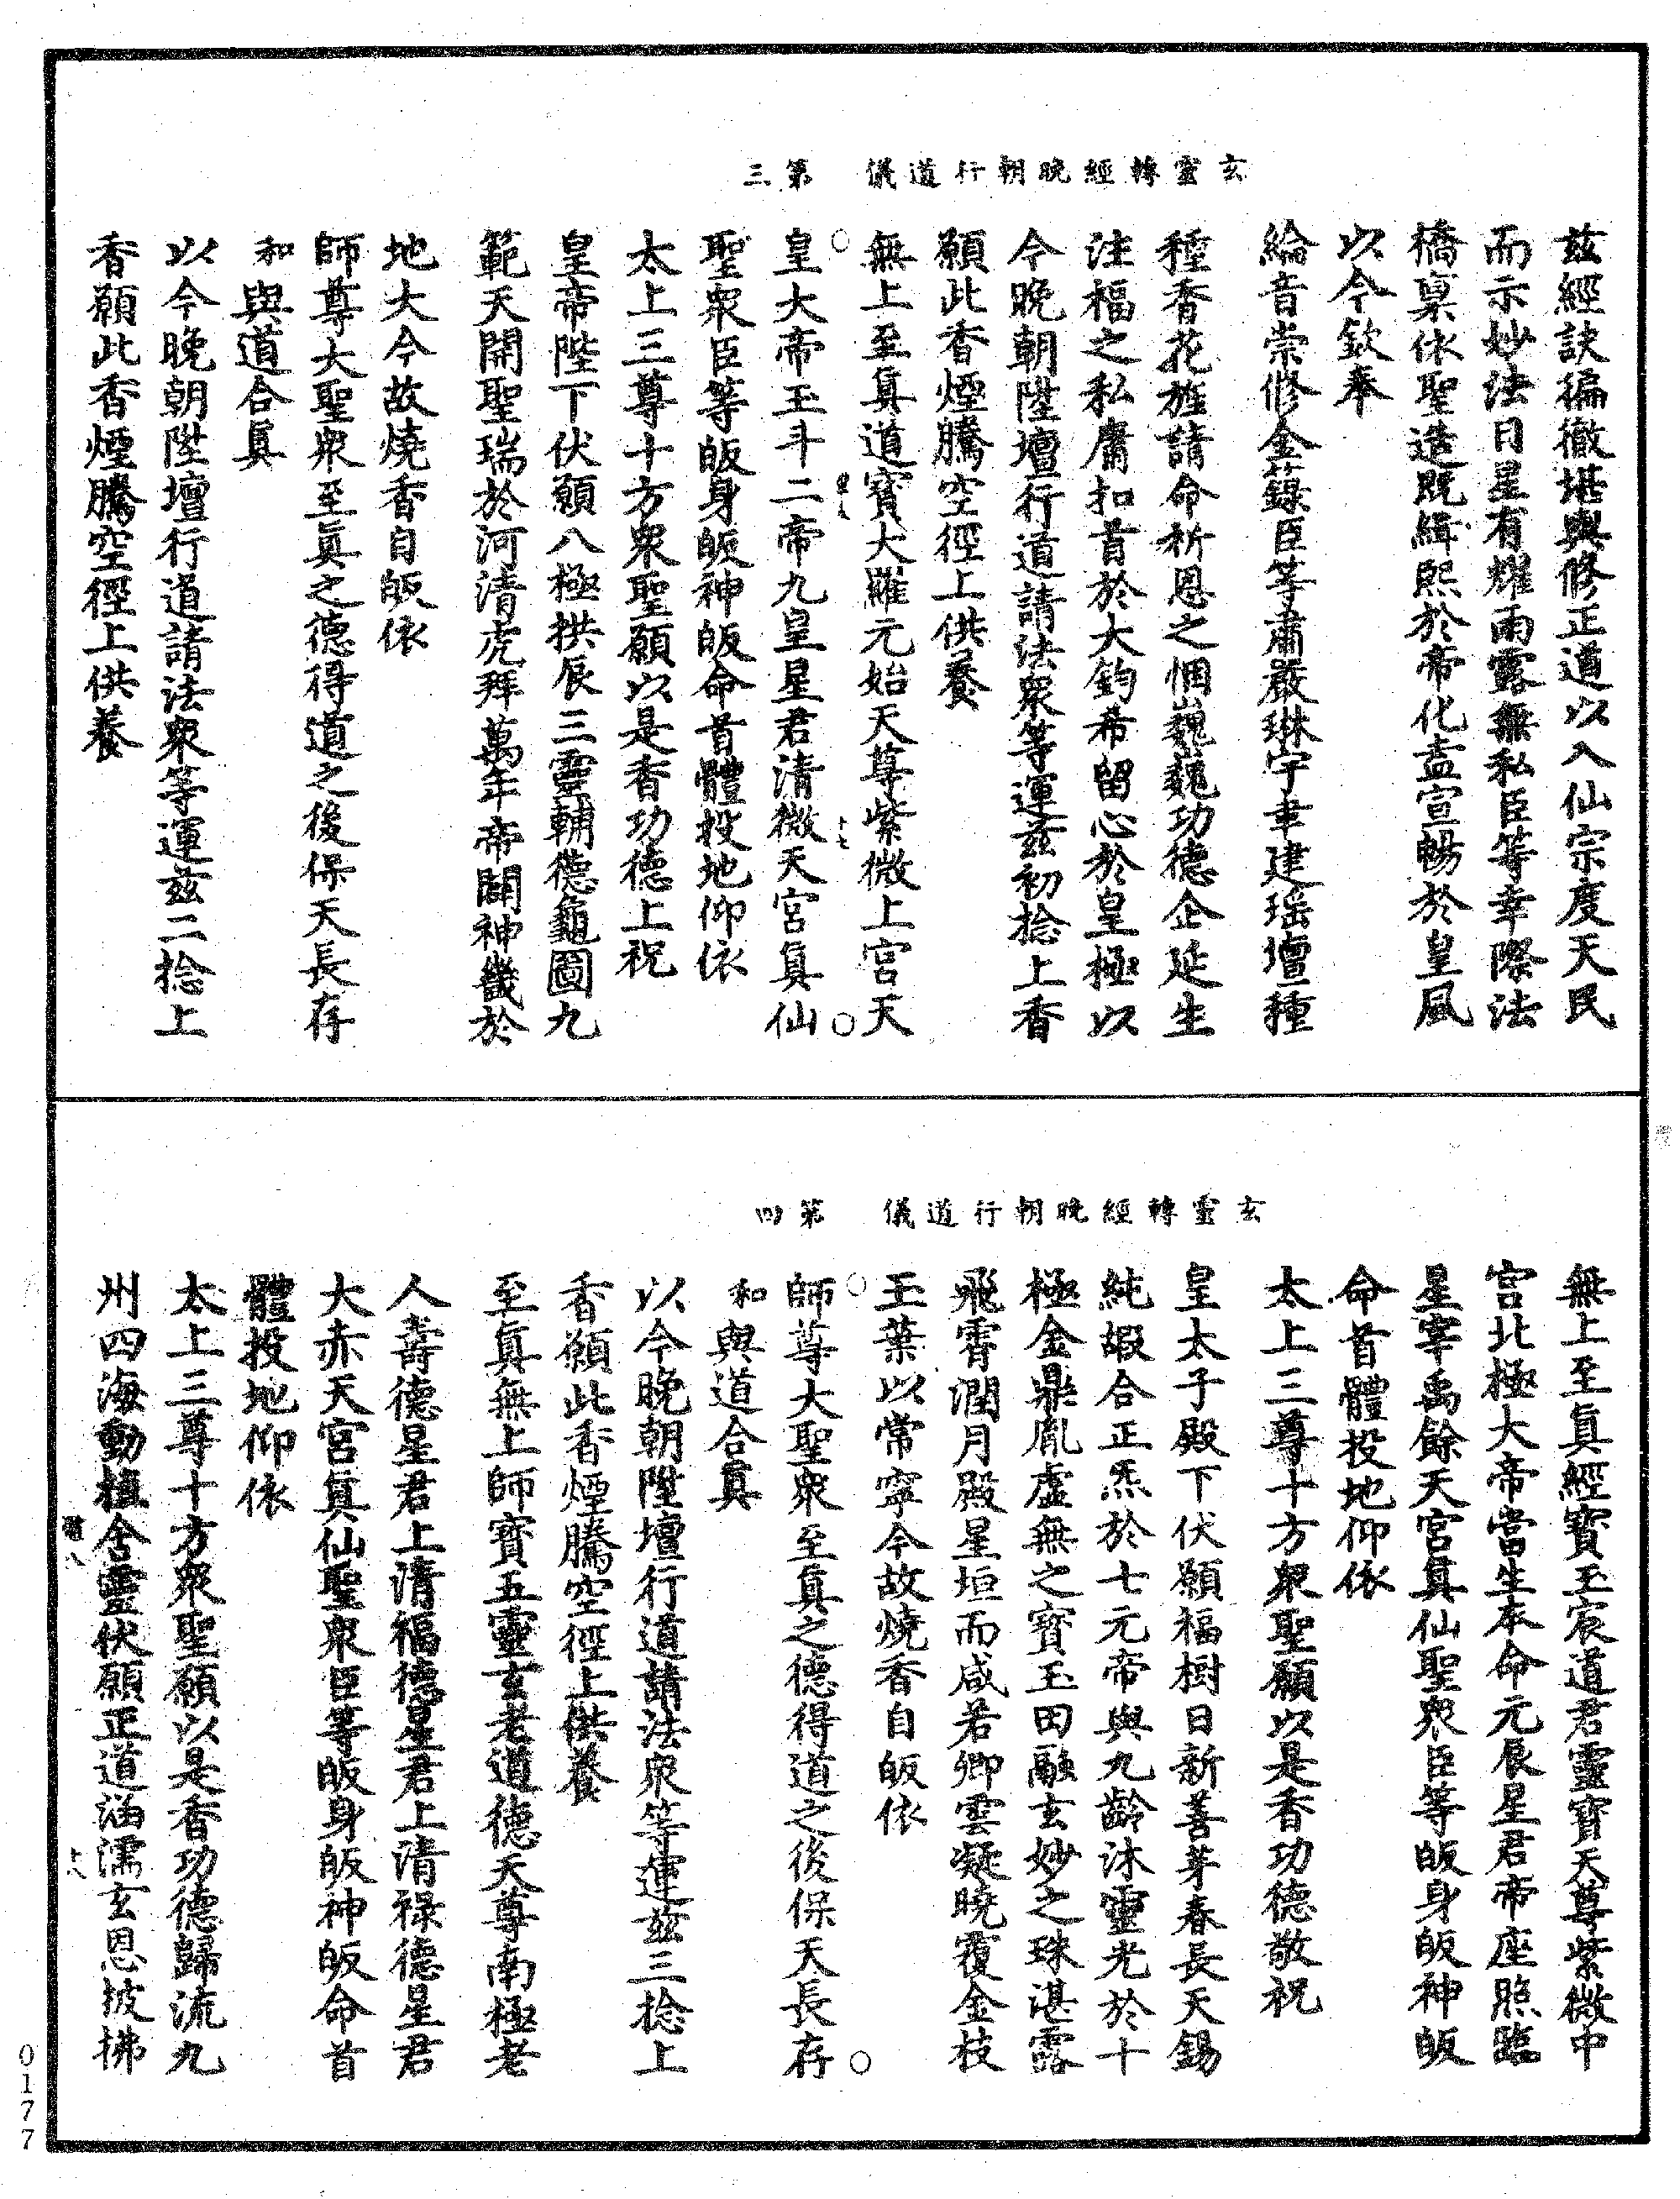 玄靈轉經晚朝行道儀　第三
茲經訣徧徹堪輿修正道以入仙宗度天民
而示妙法日星有耀雨露無私臣等幸際法
橋稟依聖造既緝熙於帝化盍宣暢於皇風
以今欽奉
綸音崇修金籙臣等肅嚴琳宇聿建瑶壇種
種香花旌請命析恩之悃巍巍功德企延生
注福之私膚扣首於大鈞希留心於皇極以
今晚朝陞壇行道請法衆等運茲初捻上香
願此香煙騰空徑上供養
無上至真道寶大羅元始天尊紫微上宫天
皇大帝玉斗二帝九皇星君清微天宫真仙
聖衆臣等皈身皈神皈命首體投地仰依
太上三尊十方衆聖願以是香功德上祝
皇帝陛下伏願八極拱辰三靈輔德龜圖九
範天開聖瑞於河清虎拜萬年帝闢神畿於
地大今故燒香自皈依
師尊大聖衆至真之德得道之後保天長存
和與道合真
以今晚朝陞壇行道請法衆等運茲二捻上
香願此香煙騰空徑上供養
玄靈轉經晚朝行道儀　第四
無上至真經寶玉宸道君靈寶天尊紫微中
宫北極大帝當生本命元辰星君帝座照臨
星宰禹餘天宫真仙聖衆臣等皈身皈神皈
命首體投地仰依
太上三尊十方衆聖願以是香功德敬祝
皇太子殿下伏願福樹日新善芽春長天錫
純嘏合正炁於七元帝與九齡沐靈光於十
極金鼎胤虛無之寶玉田融玄妙之珠湛露
飛霄潤月殿星垣而咸若卿雲凝曉覆金枝
玉葉以常寧今故燒香自皈依
師尊大聖衆至真之德得道之後保天長存
和與道合真
以今晚朝陞壇行道請法衆等運茲三捻上
香願此香煙騰空徑上供養
至真無上師寶五靈玄老道德天尊南極老
人壽德星君上清福德星君上清禄德星君
大赤天宫真仙聖衆臣等皈身皈神皈命首
體投地仰依
太上三尊十方衆聖願以是香功德歸流九
州四海動植含靈伏願正道涵濡玄恩披拂
0177